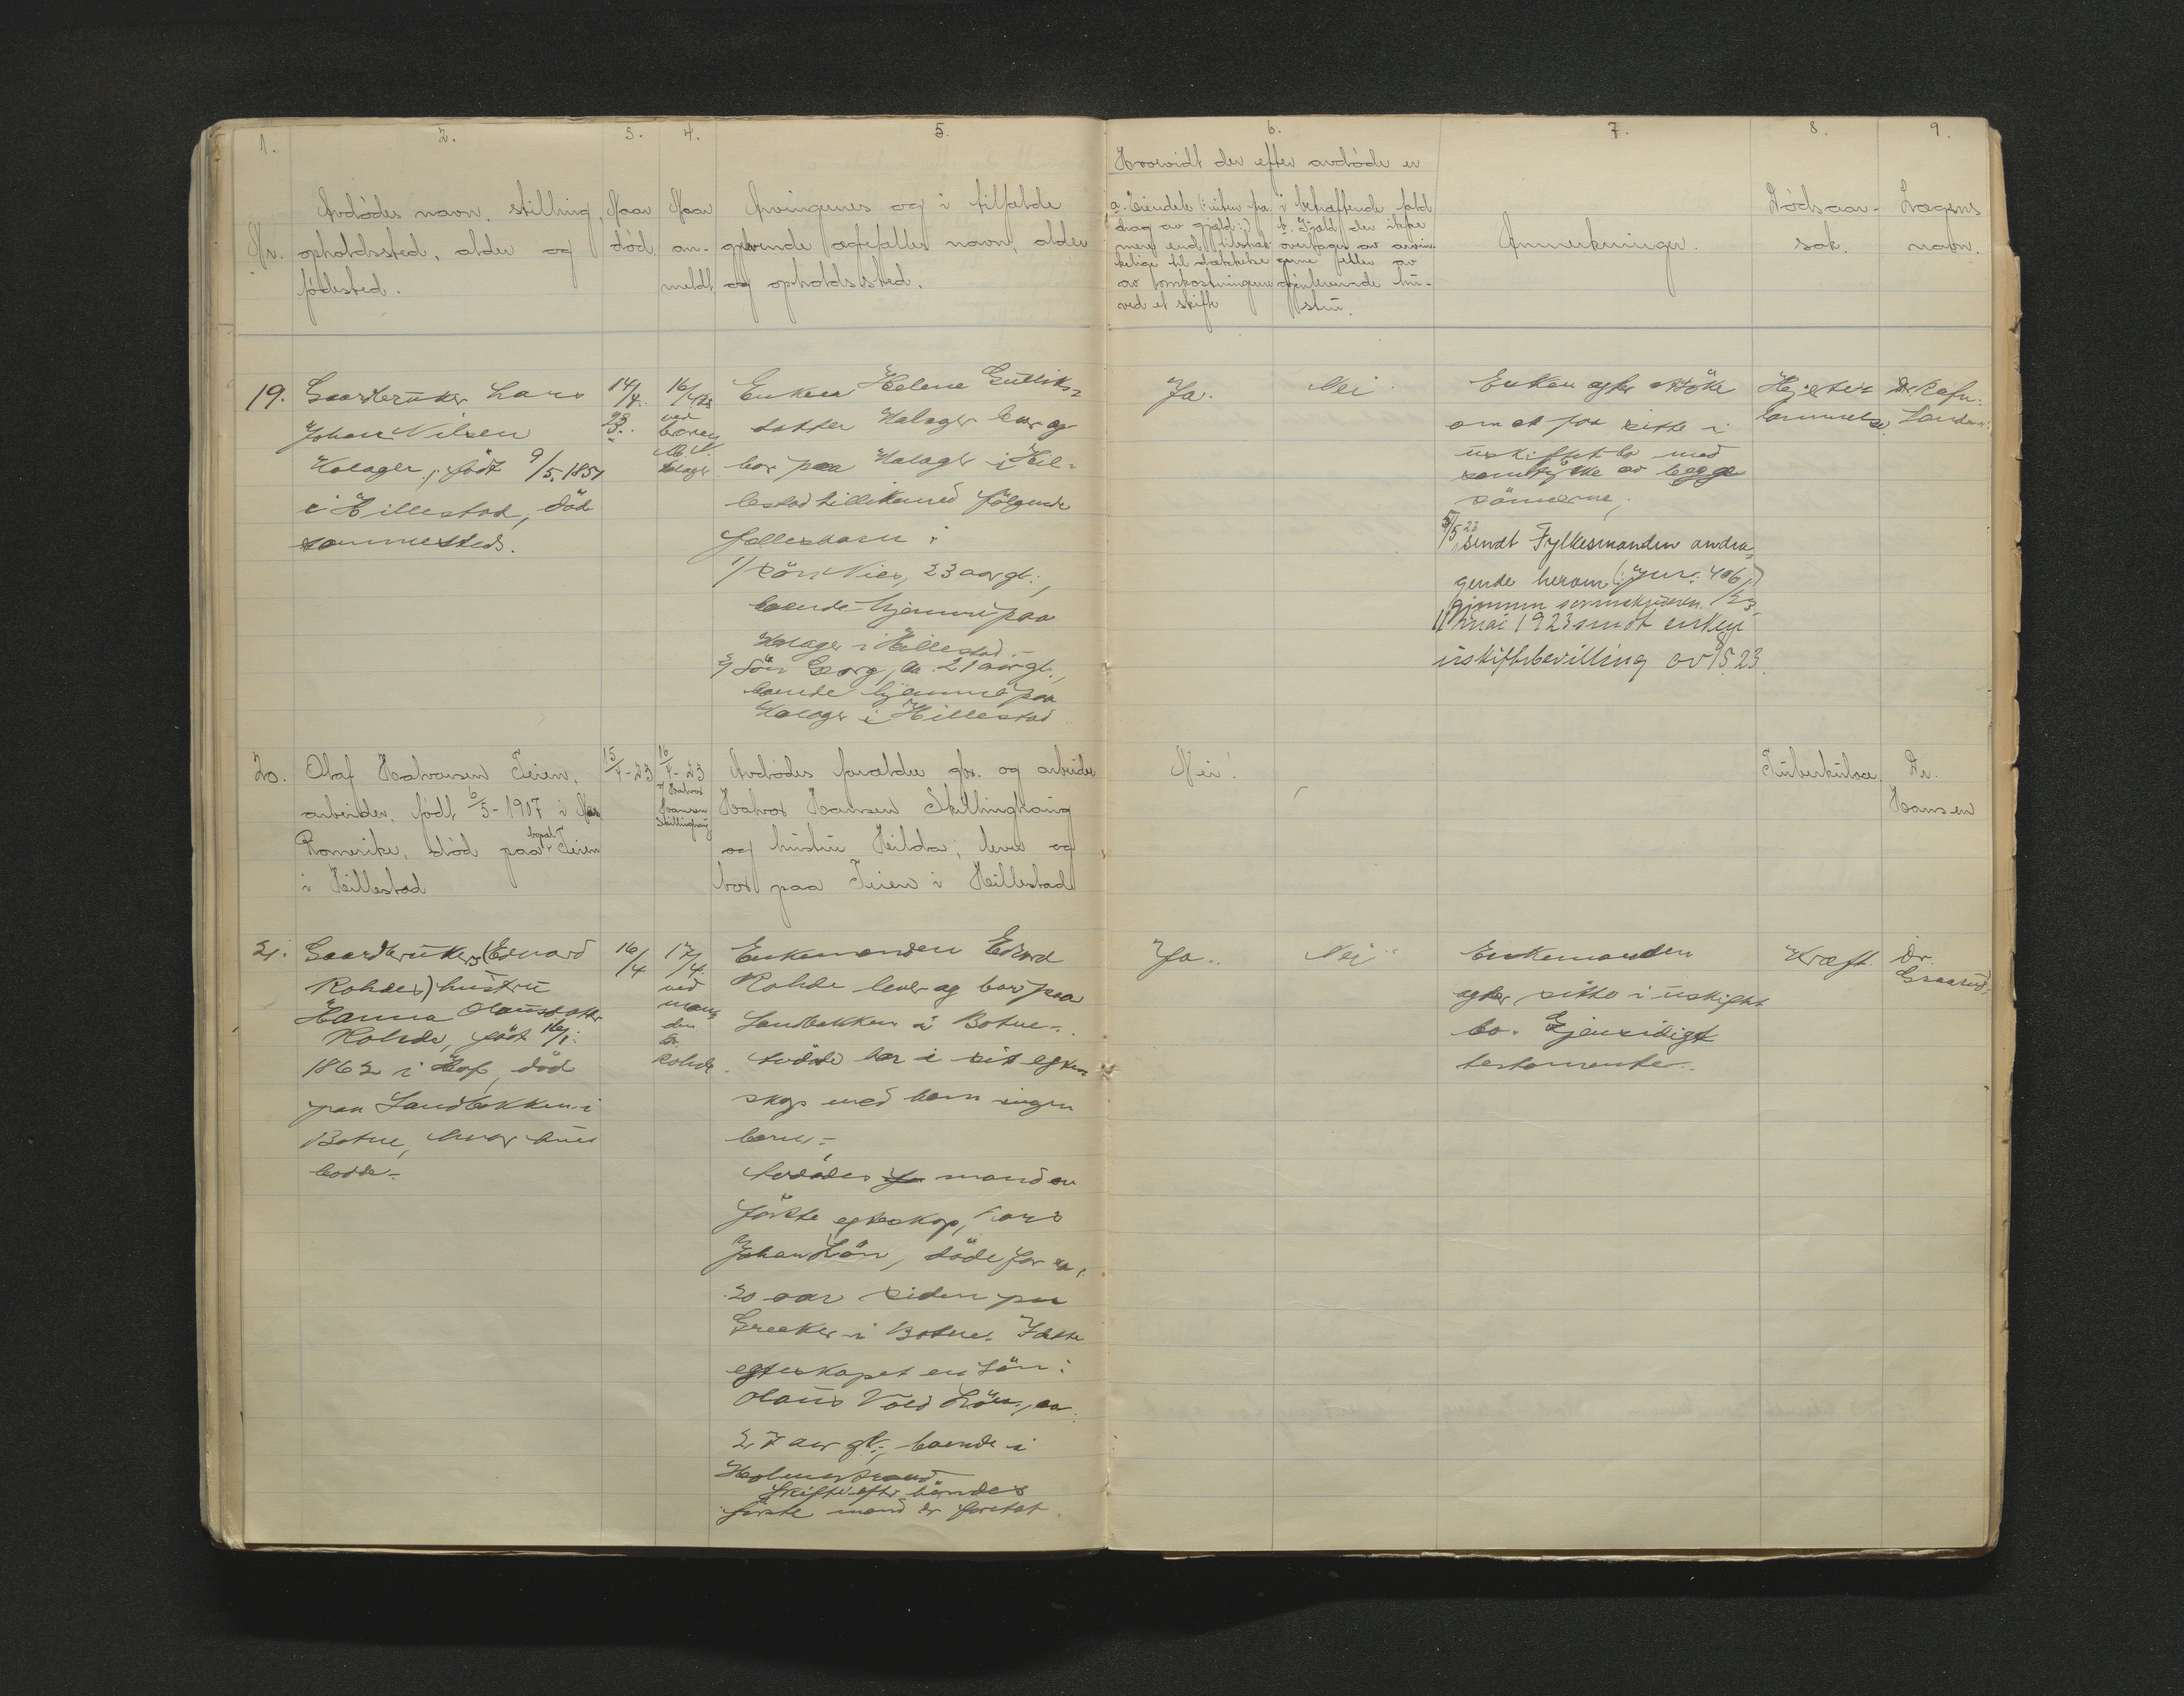 1. 2. 3. 4. 5. 6. 7. 8. 9.
Hvorvidt der efter avdøde er
Nr.
Avdødes navn, stilling,
opholdssted, alder og
fødested.
Naar
død
Naar
an-
meldt
Arvingernes og i tilfælde
gjenlevende egtefælles navn, alder
og opholdssted.
a. Eiendele (: uten fra
drag av gjæld:)
mere end tilstræk-
kelige til dækkelse
av omkostningerne
ved et skifte
i bekræftende fald
b. Gjæld der ikke
overtages av arvin-
gerne eller av
gjenlevende hu-
stru.
Anmerkninger.
Dødsaar-
sak.
Lægens
navn.
19.
Gaardbruker Lars
Johan Nilsen
Kolager, født 9/5. 1851
i Hillestad, død
sammesteds.
14/4.
23.
16/4 23
ved
Enken Helene Gulliks-
datter Kolager lever og
bor paa Kolager i Hil-
lestad tillikemed følgende
fellesbarn:
1/ Søn Nils, 23 aar gl.,
boende hjemme paa
Kolager i Hillestad
2/ Søn Georg, ca. 21 aar gl.,
boende hjemme paa
Kolager i Hillestad
Ja.
Nei
Enken agter at søke
om at faa sitte i
uskiftet bo med
samtykke av begge
sønnerne,
5/5 23 sendt Fylkesmanden andra-
gende herom (: Jnr. 406/23
gjennem
11 mai 1923 sendt enken
uskiftebevilling av 8/5 23.
Hjerte
lammelse
Dr.
20.
Olaf Halvorsen Teien,
arbeider, født 6/5-1907 i Nes
Romerike, død paa bopæl Teien
i Hillestad
15/4-23
16/4-23
v/ Halvor
Hansen
Skillinghaug
Avdødes forældre gbr. og arbeider
Halvor Hansen Skillinghaug
og hustru Hilda, lever og
bor paa Teien i Hillestad
Nei!
Tuberkulose.
Dr.
Hansen
21.
Gaardbruker (Edvard
Rohdes) hustru
Hanna Olausdatter
Rohde, født 16/1.
1862 i Hof, død
paa Sandbakken i
Botne, hvor hun
bodde.-
16/4
17/4.
ved
man-
den
E.
Rohde
Enkemanden Edvard
Rohde lever og bor paa
Sandbakken i Botne.
Avdøde har i sit egte-
skap med ham ingen
barn.-
Avdødes mand av
første egteskap, Lars
Johan Løn, døde for ca.
20 aar siden paa
Greaker i Botne. I dette
egteskapet en søn:
Olaus Vold Løn, ca.
27 aar gl., boende i
Holmestrand
Skifte efter hendes
første mand er foretat.
Ja..
Nei
Enkemanden
agter sitte i uskiftet
bo. Gjensidigt
testamente.
Kræft.
Dr.
Graarud